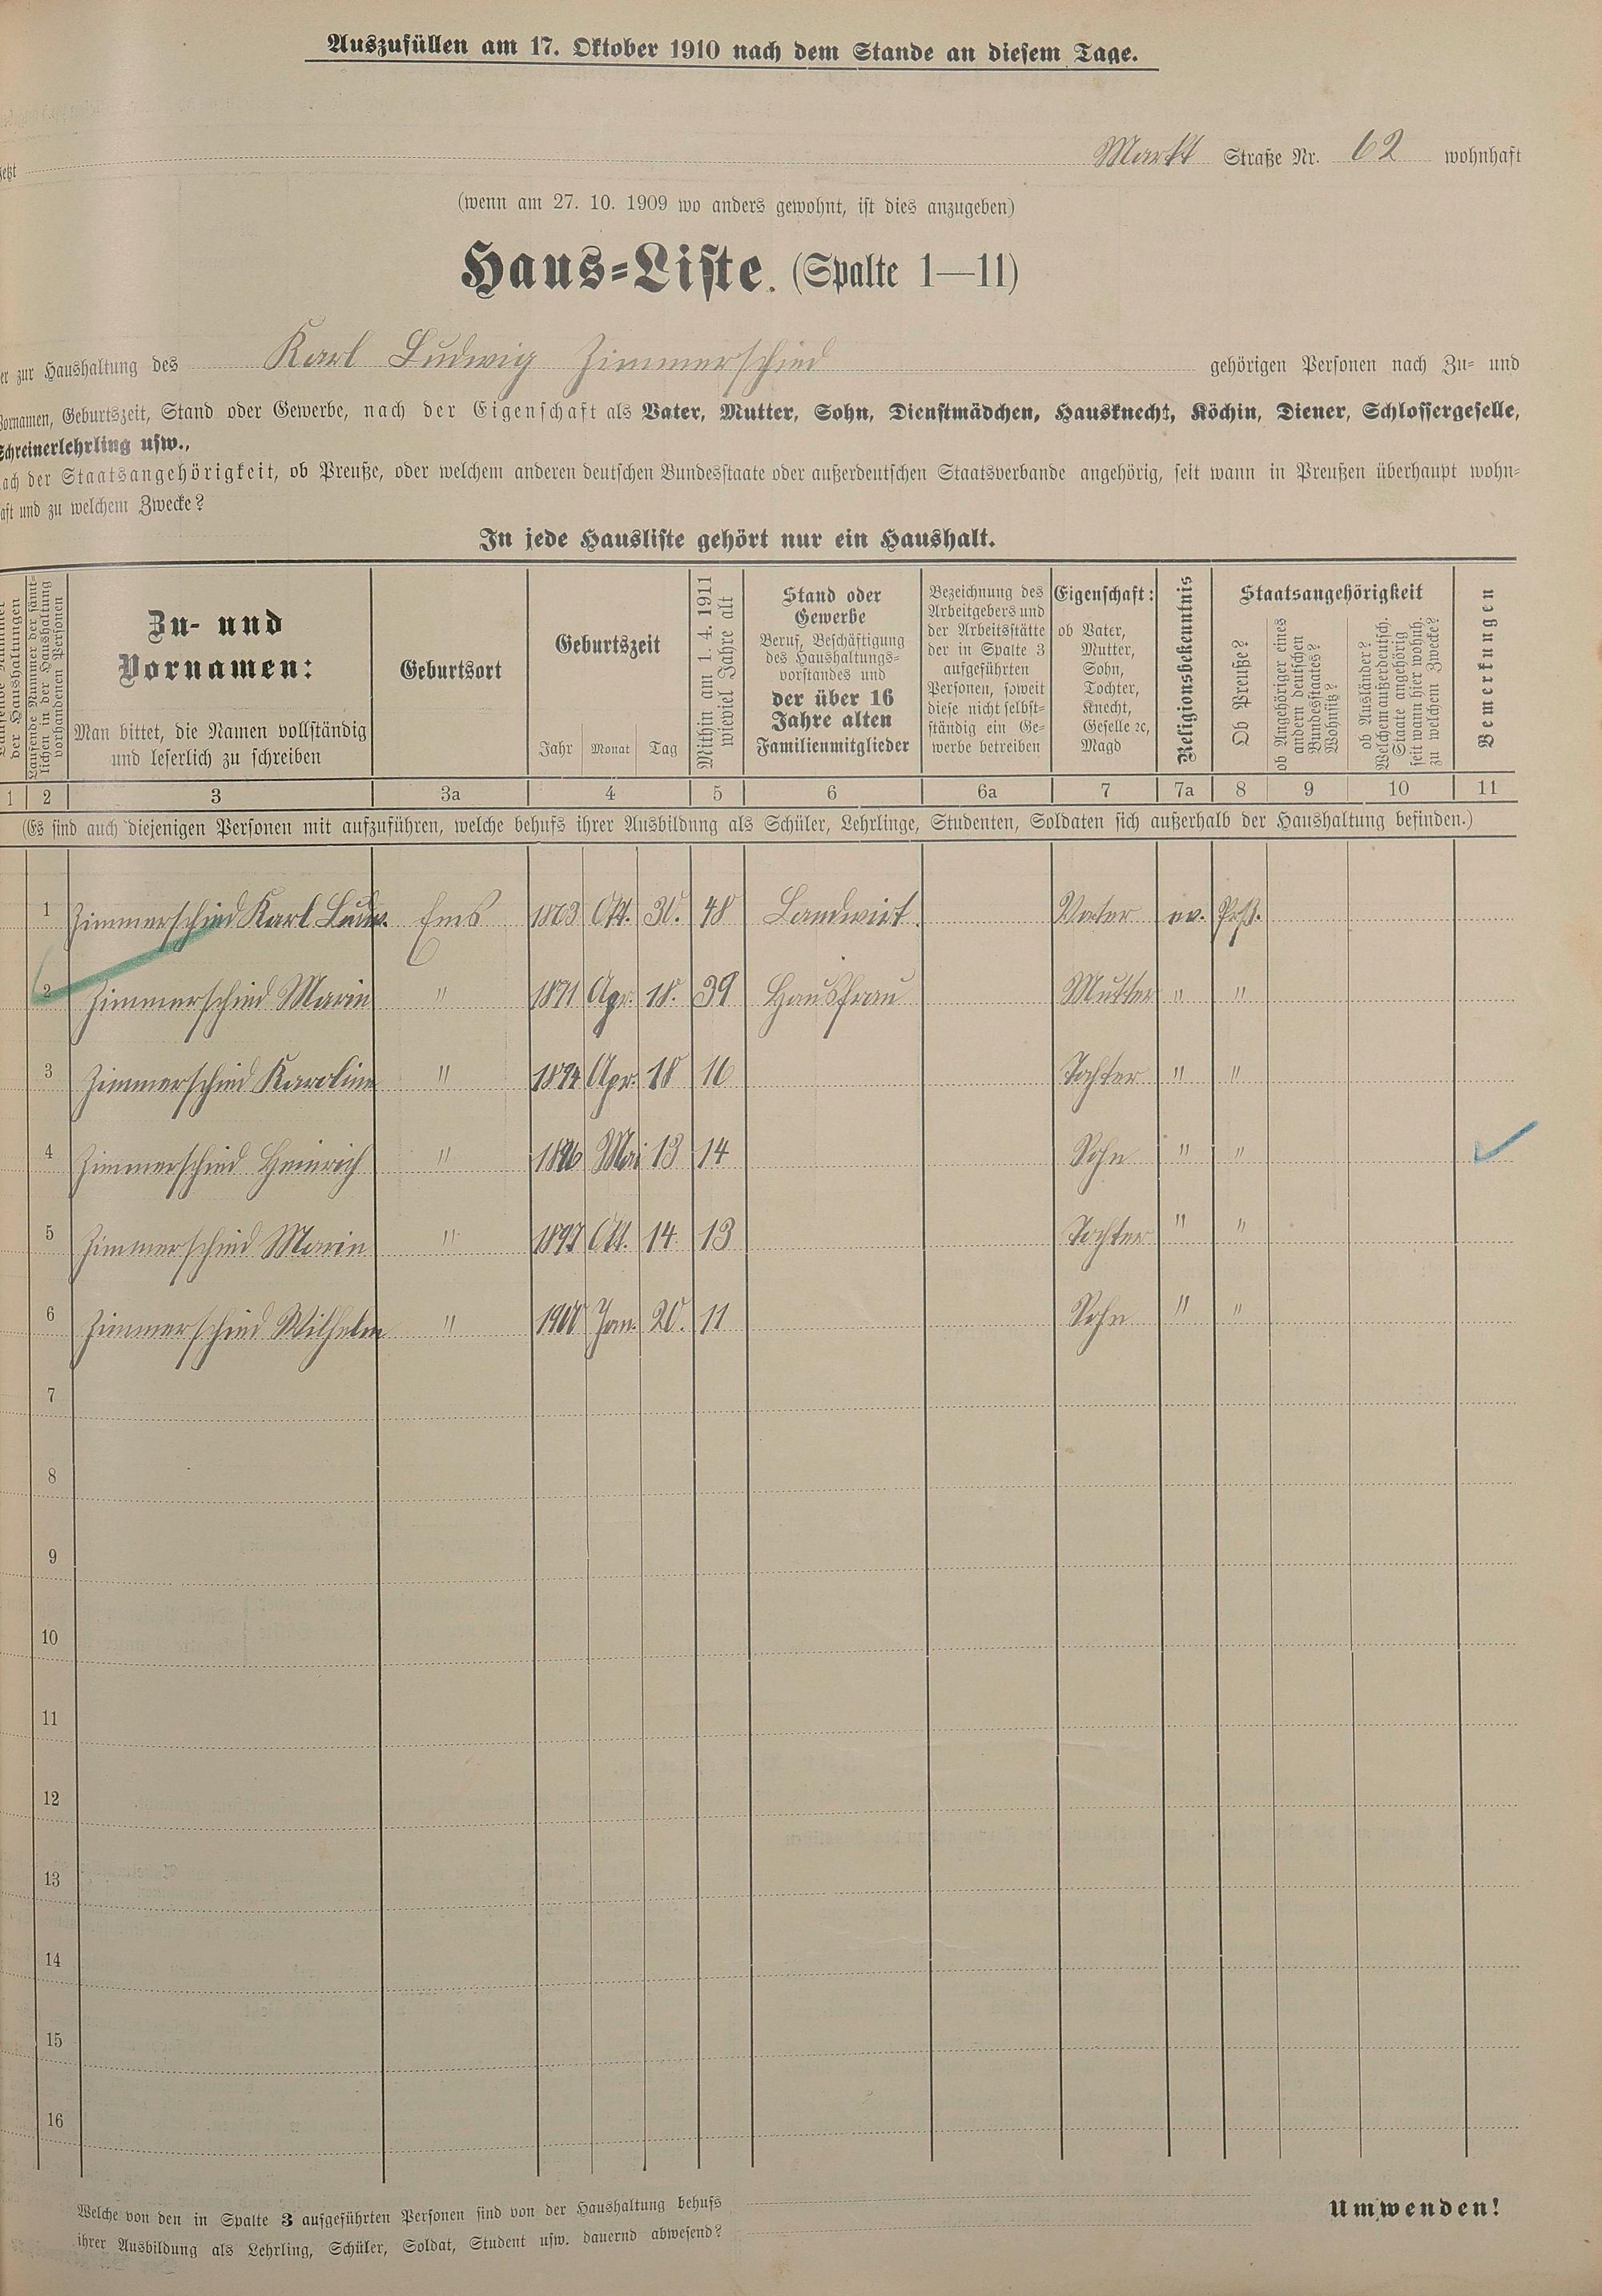 Auszufüllen am 17. Oktober 1910 nach dem Stande an diesem Tage.
jetzt Markt Straße Nr. 62 wohnhaft
(wenn am 27. 10. 1909 wo anders gewohnt, ist dies anzugeben)
Haus=Liste. (Spalte 1—11)
er zur Haushaltung des Karl Ludwig Zimmerschied gehörigen Personen nach Zu= und
Vornamen, Geburtszeit, Stand oder Gewerbe, nach der Eigenschaft als Vater, Mutter, Sohn, Dienstmädchen, Hausknecht, Köchin, Diener, Schlossergeselle,
Schreinerlehrling usw.,
nach der Staatsangehörigkeit, ob Preuße, oder welchem anderen deutschen Bundesstaate oder außerdeutschen Staatsverbande angehörig, seit wann in Preußen überhaupt wohn=
haft und zu welchem Zwecke?
In jede Hausliste gehört nur ein Haushalt.
Laufende Nummer der Haushaltungen
Laufende Nummer der sämtlichen in der Haushaltung vorhandenen Personen
Zu- und
Vornamen:
Man bittet, die Namen vollständig
und leserlich zu schreiben
Geburtsort
Geburtszeit
Jahr Monat Tag
Mithin am 1. 4. 1911
wieviel Jahre alt
Stand oder
Gewerbe
Beruf, Beschäftigung
des Haushaltungs=
vorstandes und
der über 16
Jahre alten
Familienmitglieder
Bezeichnung des
Arbeitgebers und
der Arbeitsstätte
der in Spalte 3
aufgeführten
Personen, soweit
diese nicht selbst=
ständig ein Ge=
werbe betreiben
Eigenschaft:
ob Vater,
Mutter,
Sohn,
Tochter,
Knecht,
Geselle ꝛc,
Magd
Religionsbekenntnis
Staatsangehörigkeit
Ob Preuße?
ob Angehöriger eines
andern deutschen
Bundesstaates?
Wohnsitz?
ob Ausländer?
Welchem außerdeutsch.
Staate angehörig
seit wann hier wohnh.
zu welchem Zwecke?
Bemerkungen
1 2 3 3a 4 5 6 6a 7 7a 8 9 10 11
(Es sind auch diejenigen Personen mit aufzuführen, welche behufs ihrer Ausbildung als Schüler, Lehrlinge, Studenten, Soldaten sich außerhalb der Haushaltung befinden.)
1 Zimmerschied Karl Ludw. Ems Okt. 30. 48 Landwirt. Vater ev. Prß.
2 Zimmerschied Marie " 1871 Apr. 18. 39 Hausfrau Mutter " "
3 Zimmerschied Karoline " 1894 Apr. 18 16 Tochter " "
4 Zimmerschied Heinrich " 1896 Mai 13 14 Sohn " "
5 Zimmerschied Marie " 1897 Okt. 14 13 Tochter " "
6 Zimmerschied Wilhelm " 1900 Jan. 20. 11 Sohn " "
7
8
9
10
11
12
13
14
15
16
Welche von den in Spalte 3 aufgeführten Personen sind von der Haushaltung behufs
ihrer Ausbildung als Lehrling, Schüler, Soldat, Student usw. dauernd abwesend?
Umwenden!